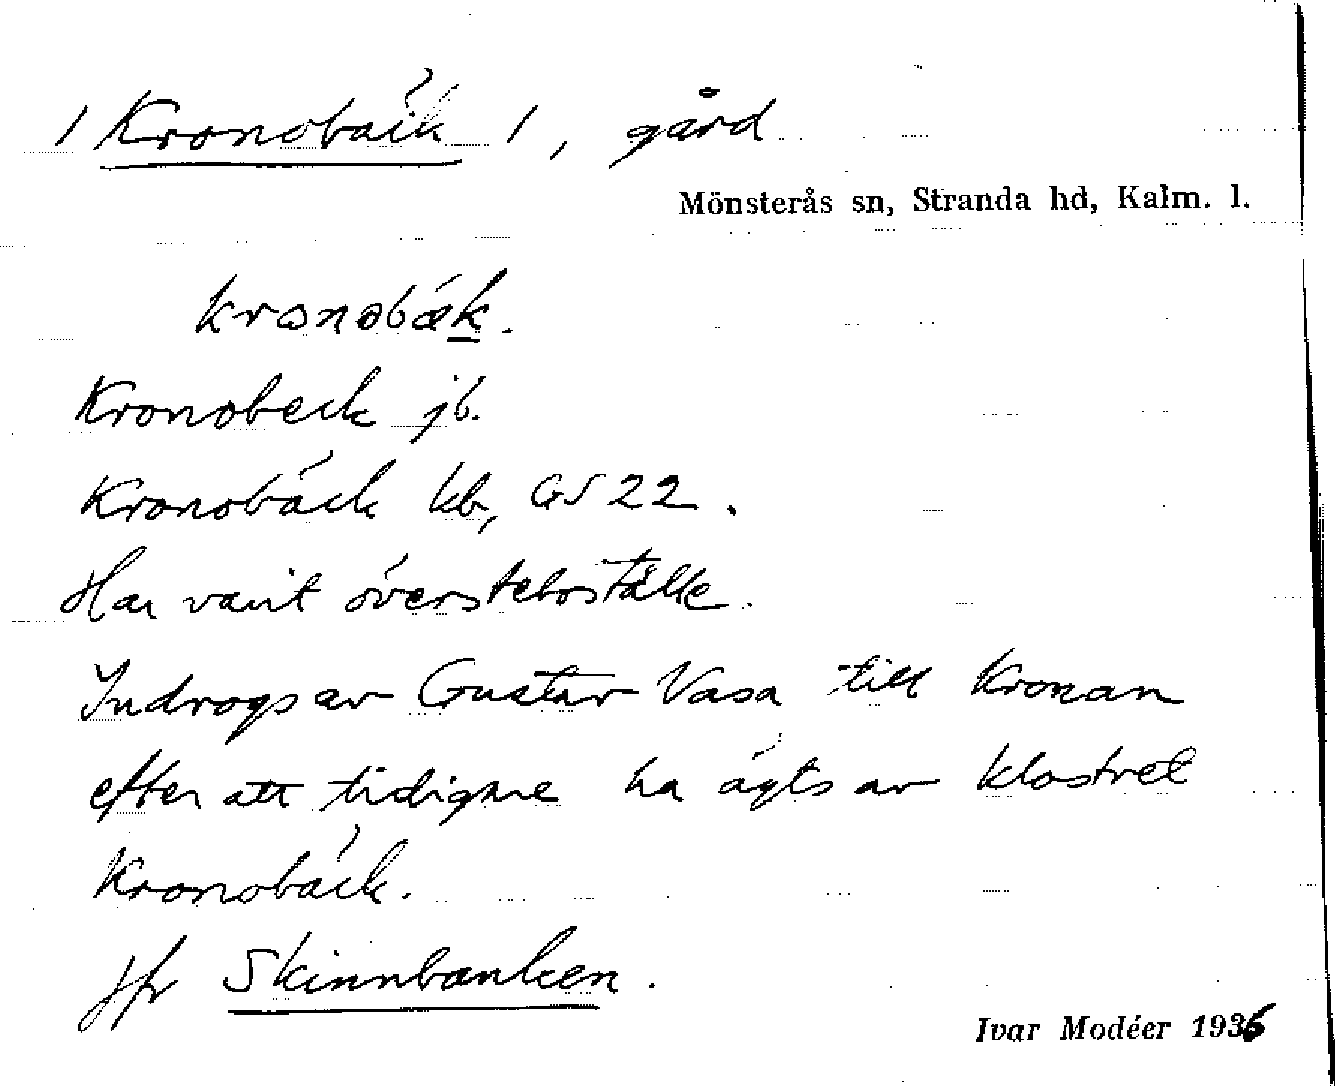 / Kronobäck /, gård
Mönsterås sn, Stranda hd, Kalm. l.
kronobæk.
Kronobeck jb.
Kronobäck kb, GS 22.
Har varit översteboställe.
Indrogs av Gustav Vasa till Kronan
efter att tidigare ha ägts av klostret
Kronobäck.
Jfr Skinnbanken.
Ivar Modéer 1936